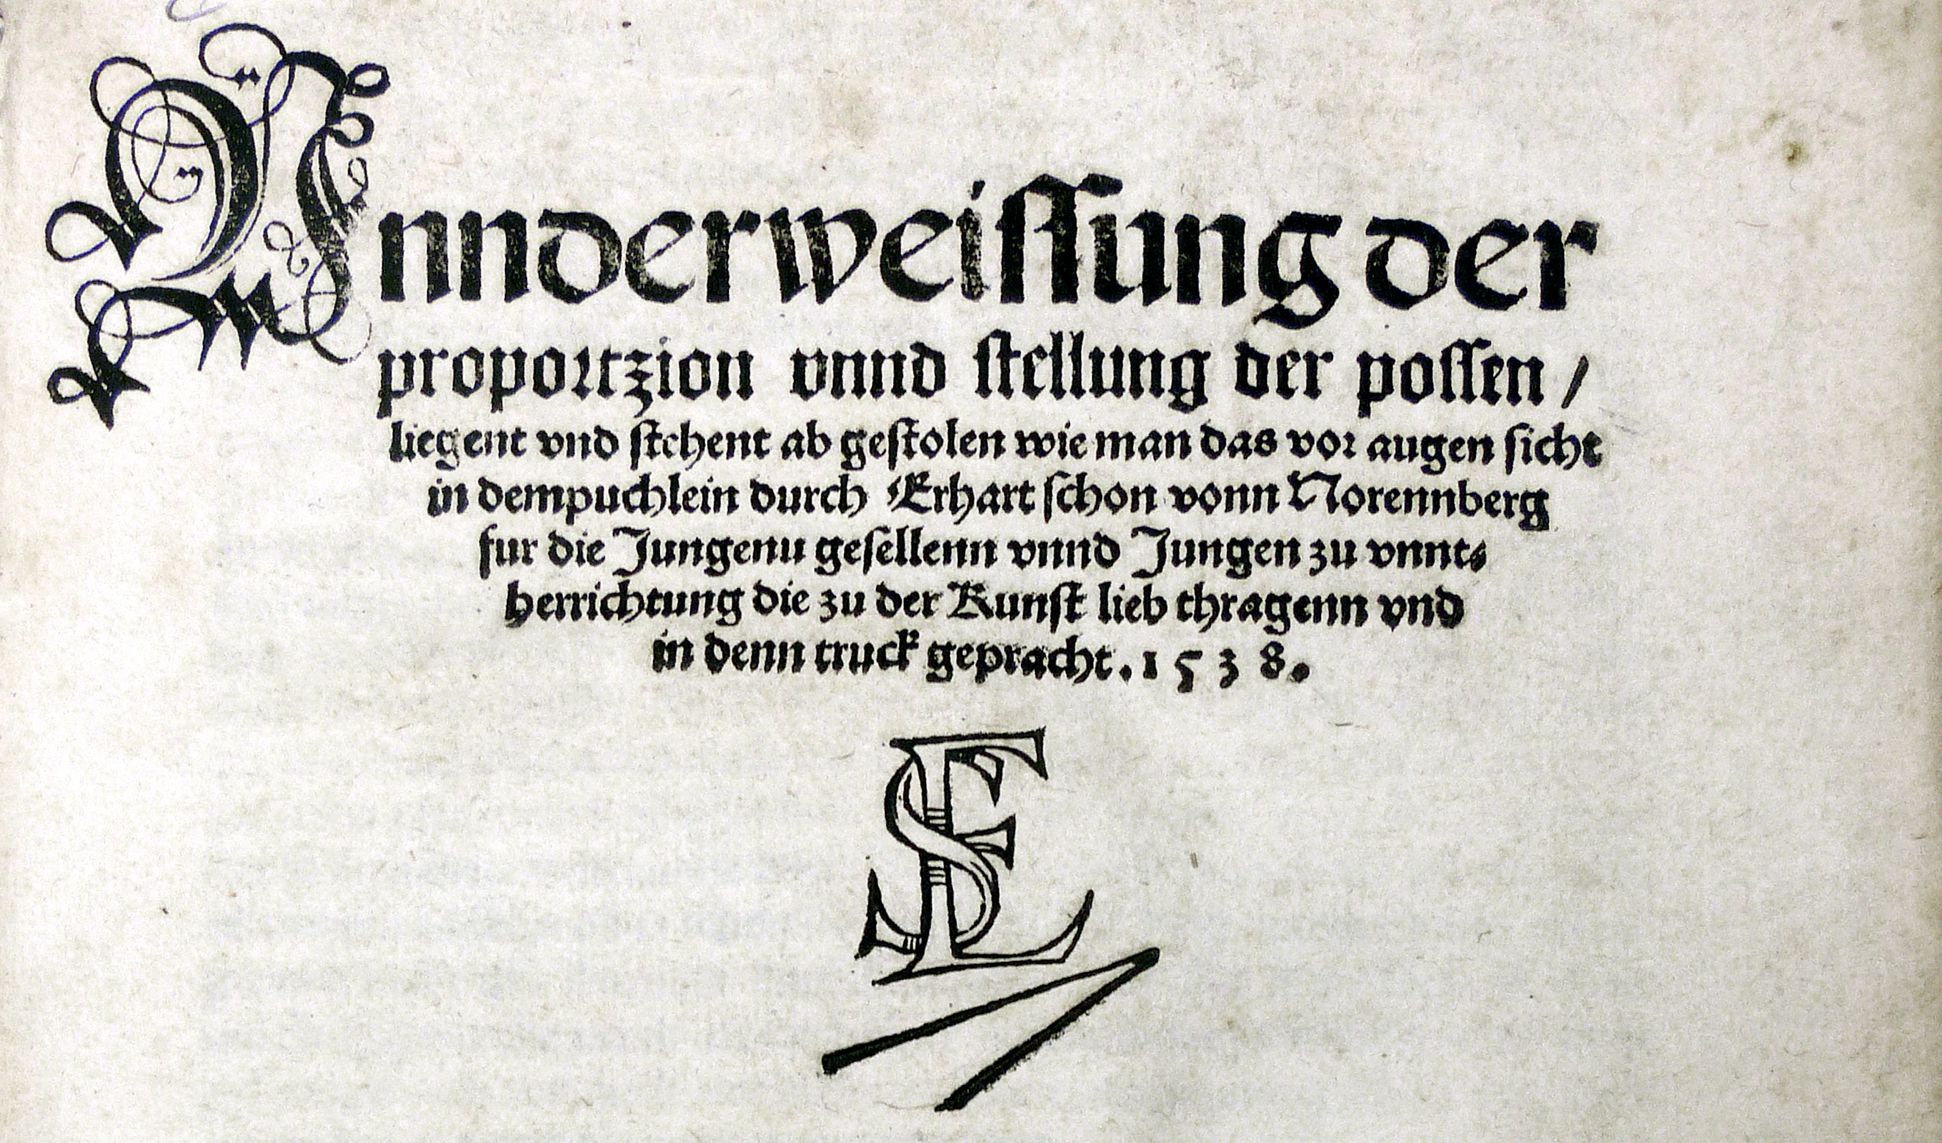 Vnnderweissung der
proportzion vnnd stellung der possen /
liegent vnd stehent ab gestolen wie man das vor augen sicht
in dem puchlein durch Erhart schon vonn Norennberg
fur die Jungenn gesellenn vnnd Jungen zu vnnt⸗
herrichtung die zu der Kunst lieb thragenn vnd
in denn truck gepracht. 1538.
ES